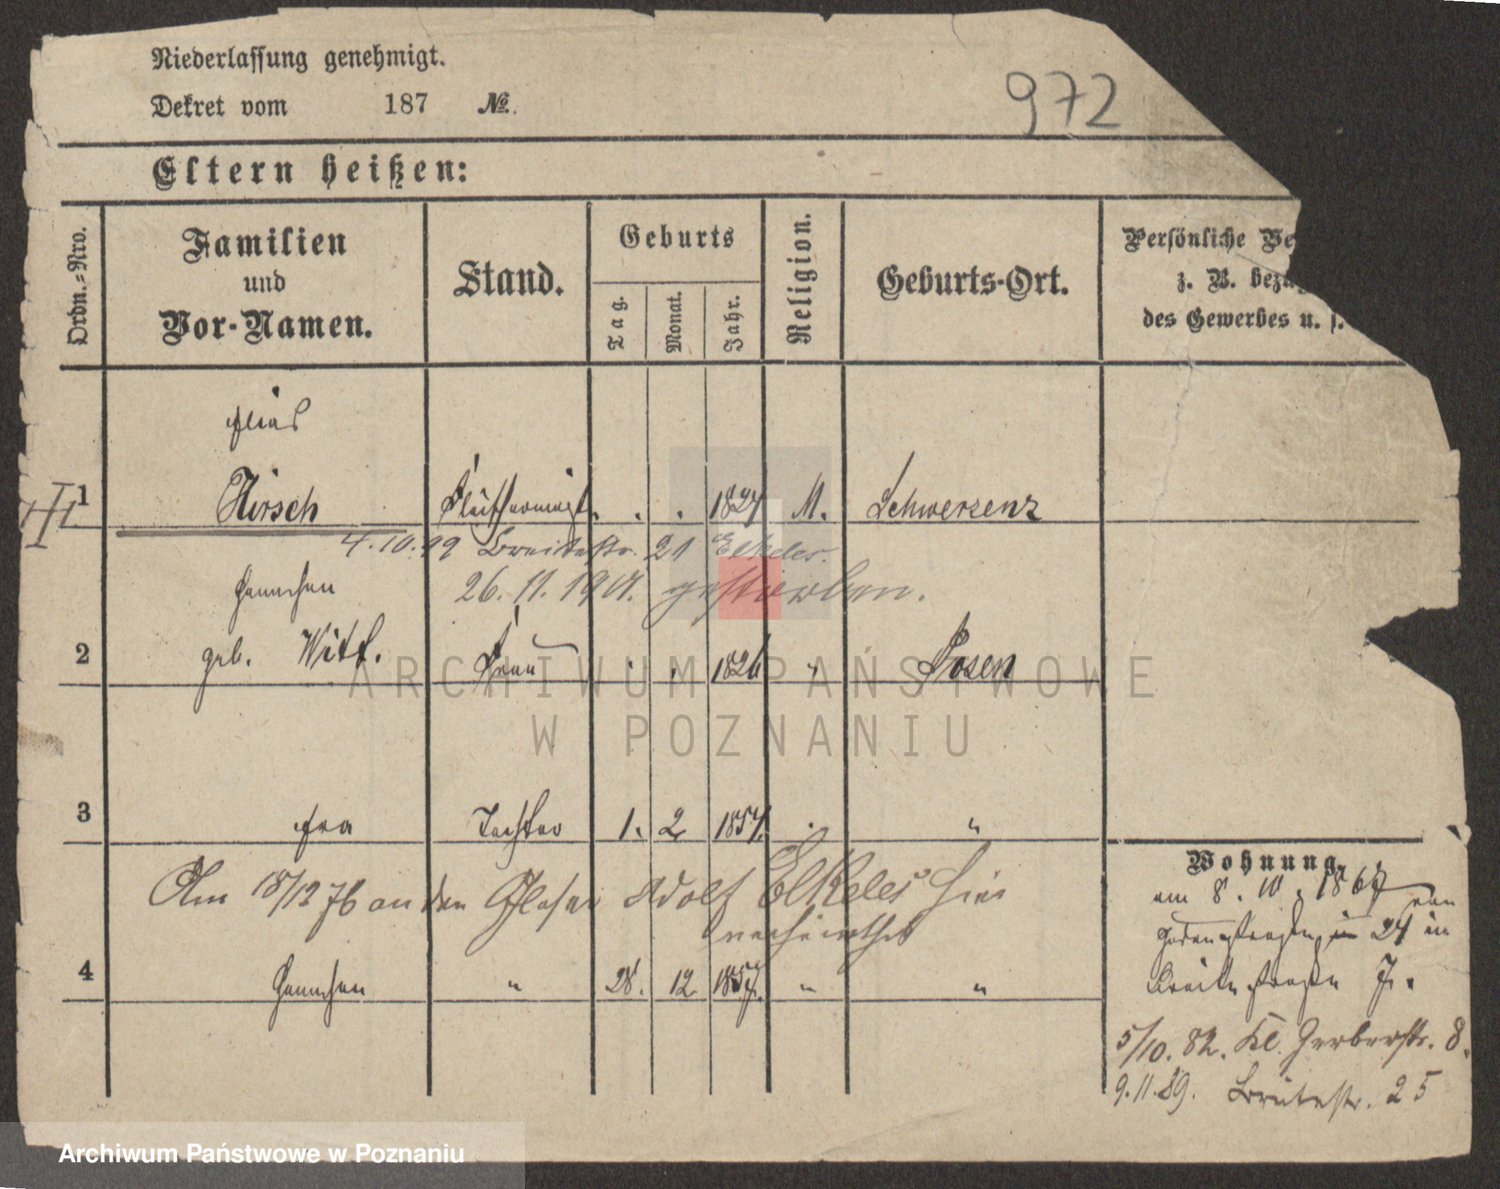 Niederlassung genehmigt.
Dekret vom 187 №.
972
Eltern heißen:
Ordn.=Nro.
Familien
und
Vor-Namen.
Stand.
Geburts
Tag.
Monat.
Jahr.
Religion.
Geburts-Ort.
Persönliche Be
z. B. bezüg
des Gewerbes u. s.
Elias
1 Hirsch 1827 M. Schwersenz
4.10.99 Breitestr. 21 Elkeles.
26. 11. 1901. gestorben.
Hannchen
2 geb. Witt. Frau . . 1826 " Posen
3 Tochter 1. 2 1857. "
Am 18/12 76 an den Glaser Adolf Elkeles hier
verheirathet
4 Hannchen " 28. 12 1857. " "
Wohnung.
am 8. 10. 1867 von
24 in
Breite straße 7.
5/10. 82. Kl. Gerberstr. 8.
9.11.89. Breitestr. 25
ARCHIWUM PAŃSTWOWE
W POZNANIU
Archiwum Państwowe w Poznaniu